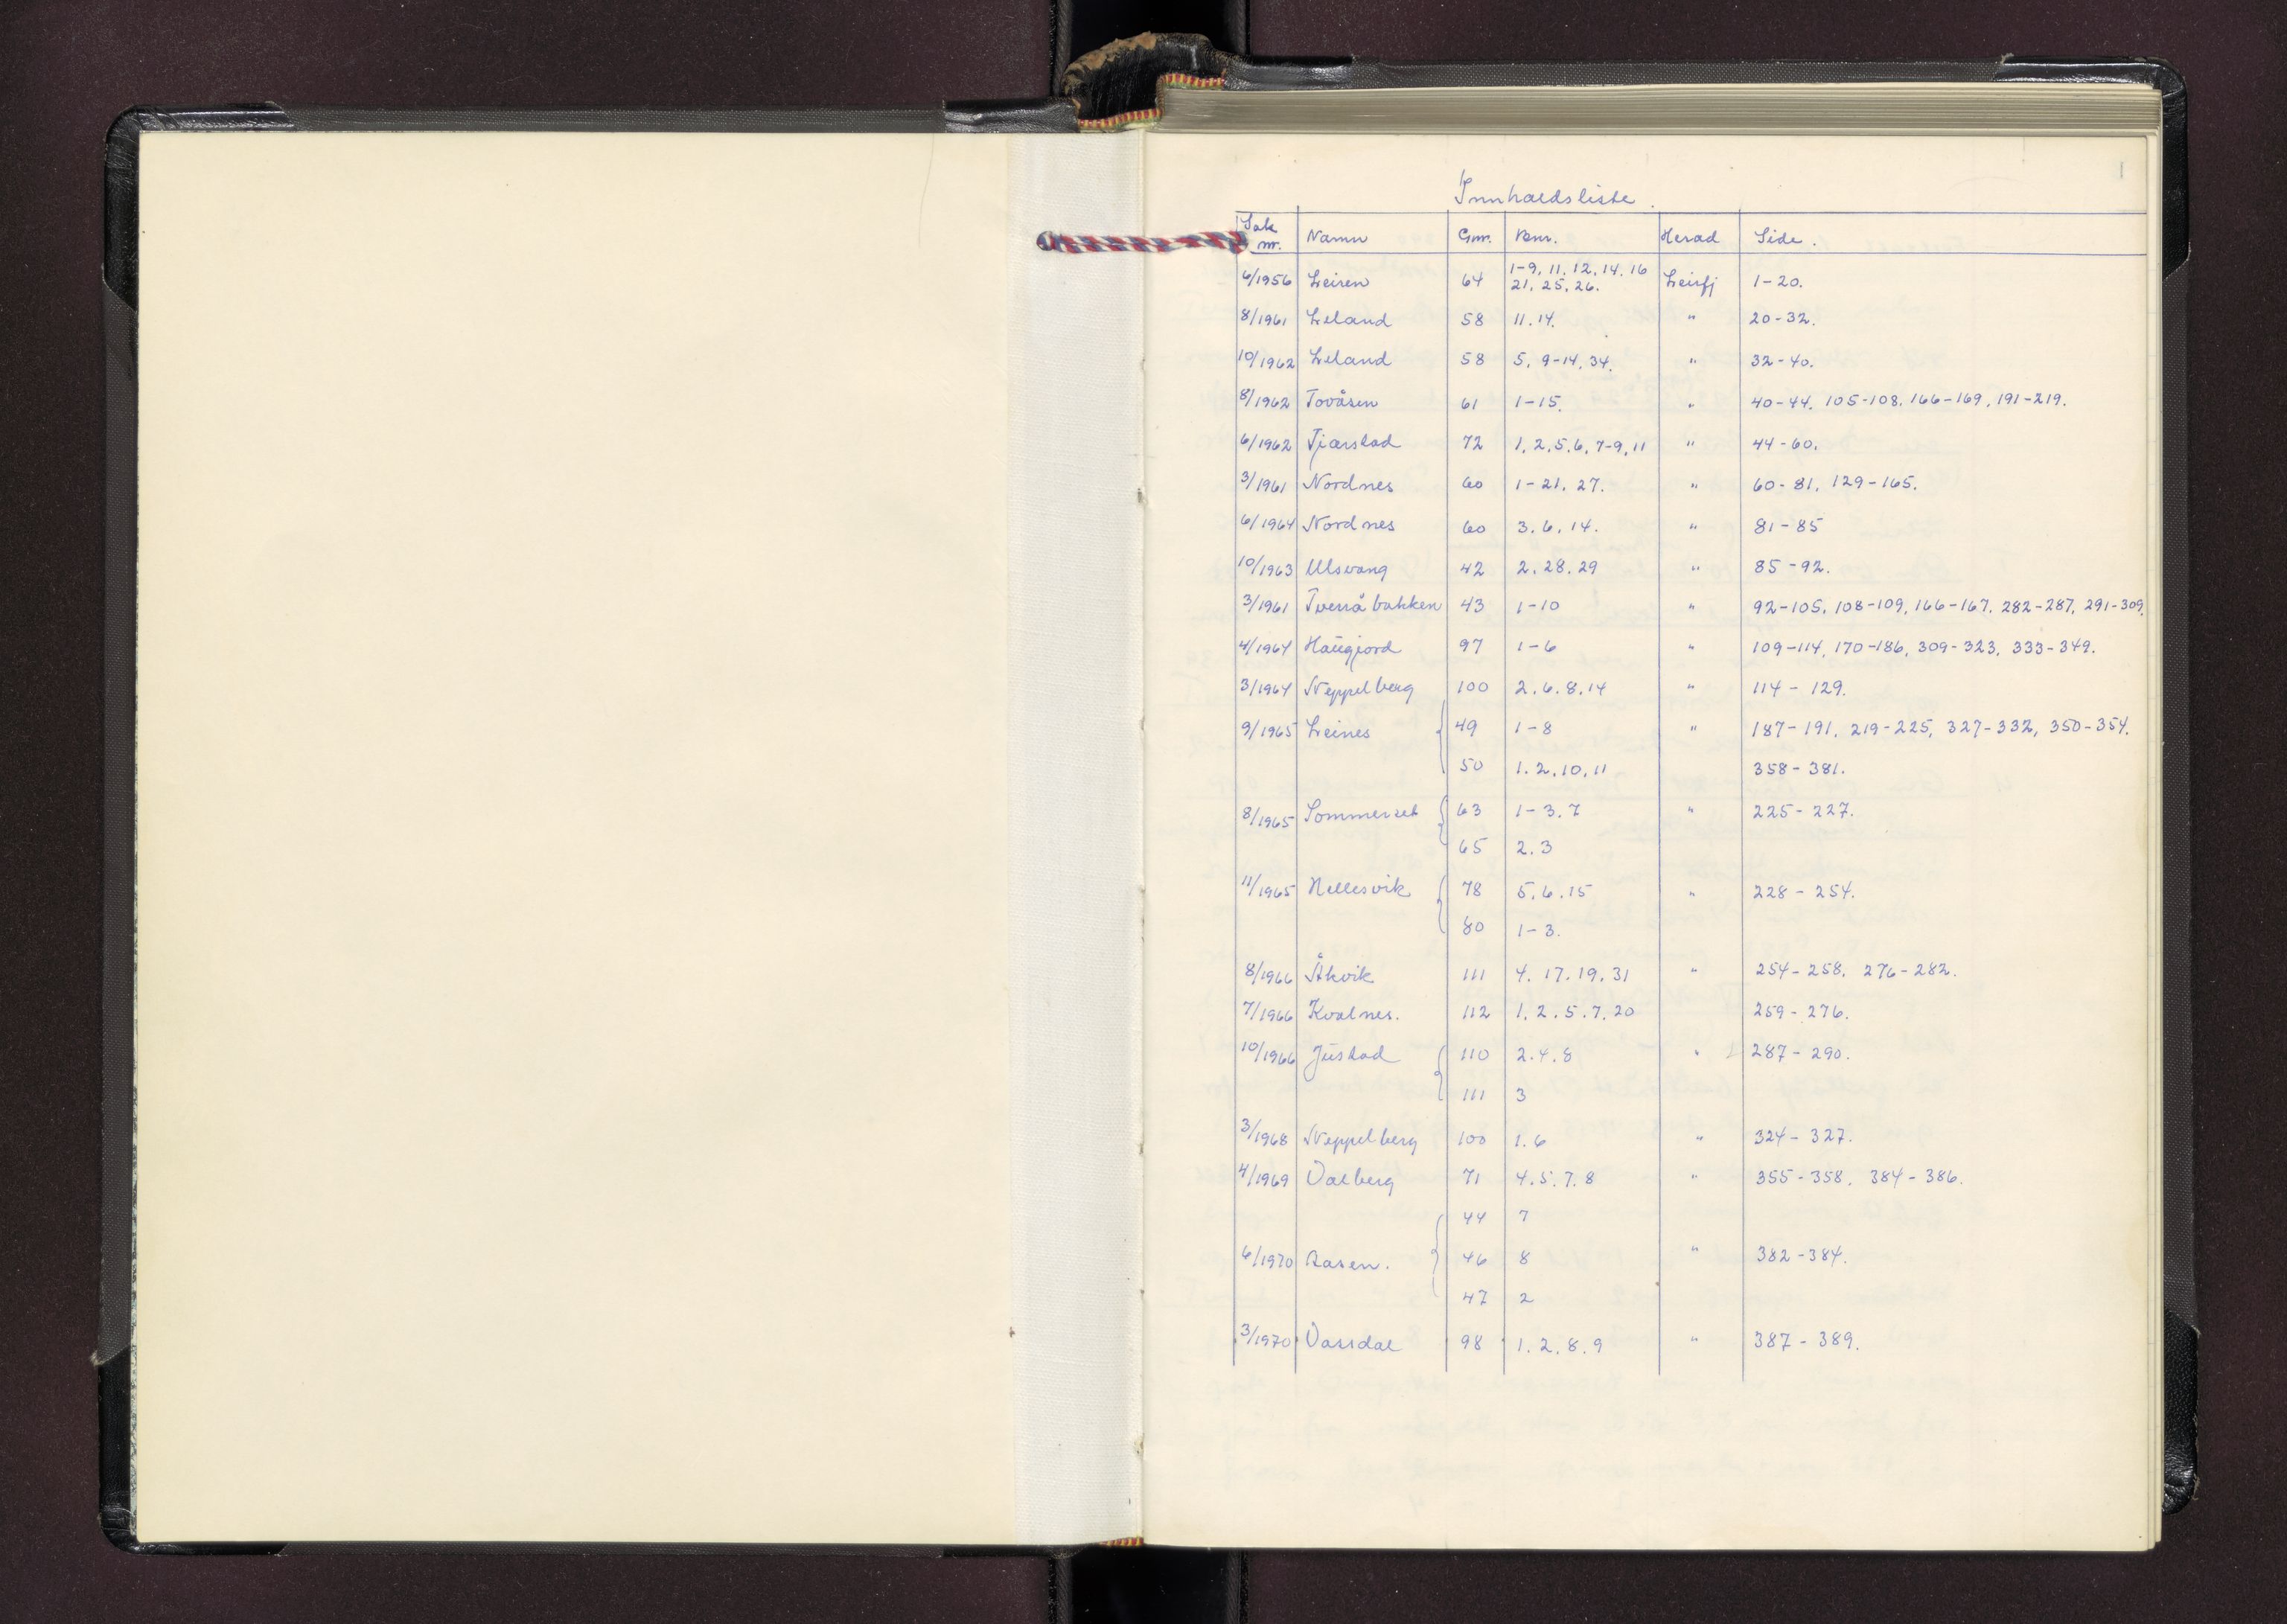 1
Innhaldsliste.
Sak nr. Namn Gnr. Bnr. Herad Side.
6/1956 Leiren 64 1-9, 11, 12, 14, 16 21, 25, 26. Leirfj 1-20.
8/1961 Leland 58 11.14. " 20-32.
10/1962 Leland 58 5, 9-14, 34. " 32-40.
8/1962 Tovåsen 61 1-15. " 40-44, 105-108, 166-169, 191-219.
6/1962 Tjærstad 72 1, 2, 5, 6, 7-9, 11 " 44-60.
3/1961 Nordnes 60 1-21, 27. " 60-81, 129-165.
6/1964 Nordnes 60 3.6.14. " 81-85
10/1963 Ulsvang 42 2.28.29 " 85-92.
3/1961 Tverråbakken 43 1-10 " 92-105, 108-109, 166-167, 282-287, 291-309.
4/1964 Haugjord 97 1-6 " 109-114, 170-186, 309-323, 333-349.
3/1964 Neppelberg 100 2.6.8.14 " 114-129.
9/1965 Leines { 49 1-8 " 187-191, 219-225, 327-332, 350-354.
50 1.2.10.11 358-381.
8/1965 Sommerset { 63 1-3.7 " 225-227.
65 2.3
11/1965 Hellesvik { 78 5.6.15 " 228-254.
80 1-3.
8/1966 Åkvik 111 4.17.19.31 " 254-258, 276-282.
7/1966 Kvalnes. 112 1.2.5.7.20 259-276.
10/1966 Justad { 110 2.4.8 " 287-290.
111 3
3/1968 Neppelberg 100 1.6 " 324-327.
4/1969 Valberg 71 4.5.7.8 " 355-358, 384-386.
44 7
6/1970 Aasen. { 46 8 " 382-384.
47 2
3/1970 Vassdal 98 1.2.8.9 " 387-389.